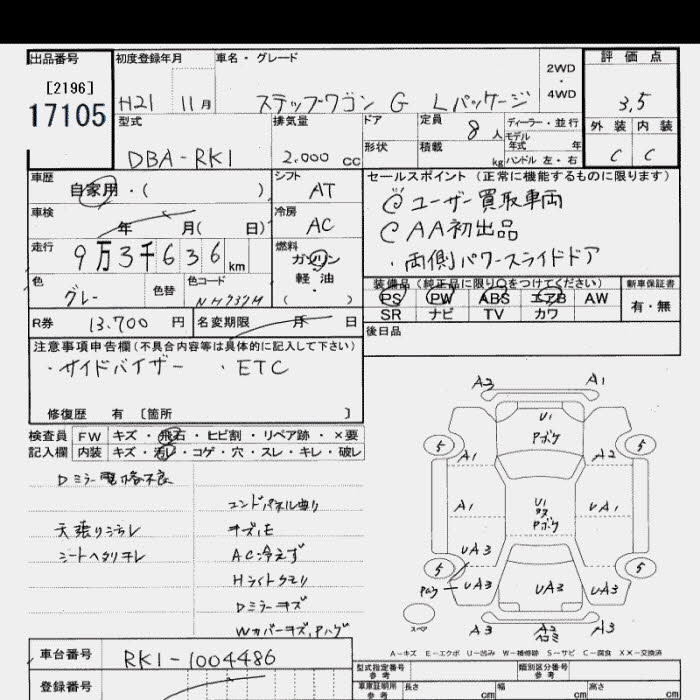 出品番号 初度登録年月 車名・グレード 2WD・4WD 評価点
[2196] 17105 H21 11月 ステップワゴン G Lパッケージ 3,5
型式 排気量 ドア 定員 8人 ディーラー・並行 外装 内装
DBA-RK1 2.000 cc 形状 積載 kg モデル年式 年 ハンドル 左・右 C C
車歴 自家用・( ) シフト AT
セールスポイント(正常に機能するものに限ります)
車検 年 月( 日) 冷房 AC
ユーザー買取車両
AA初出品
・両側パワースライドドア
走行 9万3千636km 燃料 ガソリン 軽油 ・( )
色 グレー 色替 色コード NH737M
装備品(純正品に限り○をつけてください) 新車保証書
PS PW ABS エアB AW 有・無
SR ナビ TV カワ
R券 13.700円 名変期限 月 日
後日品
注意事項申告欄(不具合内容等は具体的に記入して下さい)
・サイドバイザー ・ETC
修復歴 有 [箇所 ]
検査員 FW キズ・飛石・ヒビ割・リペア跡・×要
記入欄 内装 キズ・汚れ・コゲ・穴・スレ・キレ・破レ
Dミラー電格不良
エンドパネル曲り
天張りヨゴレ
シートヘタリヨレ
AC冷えず
Hライトクモリ
Dミラーキズ
A2 A1
U1
Pボケ
5 5
A1 A2
A1 U1 Pボケ UA1
UA3 UA3
5 5
UA3 UA3 UA3
スペア
A3 A2 A3
A-キズ E-エクボ U-凹み W-補修跡 S-サビ C-腐食 XX-交換済
車台番号 RK1-1004486
型式指定番号 参考 類別区分番号 参考
登録番号
車庫証明用 参考 長さ cm 幅 cm 高さ cm